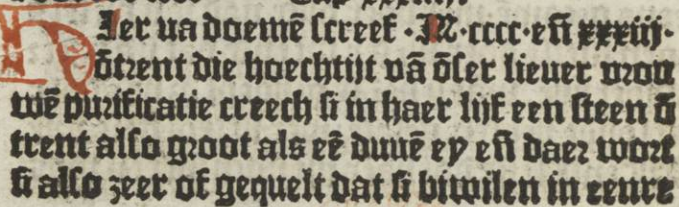 Hier na doemē screef ·M·cccc·eñ xxxiij·
ōtrent die hoechtijt vā ōser lieuer vrou
wē purificatie creech si in haer lijf een steen ō
trent also groot als eē duuē ey eñ daer wort
si also zeer of gequelt dat si biwilen in eenre